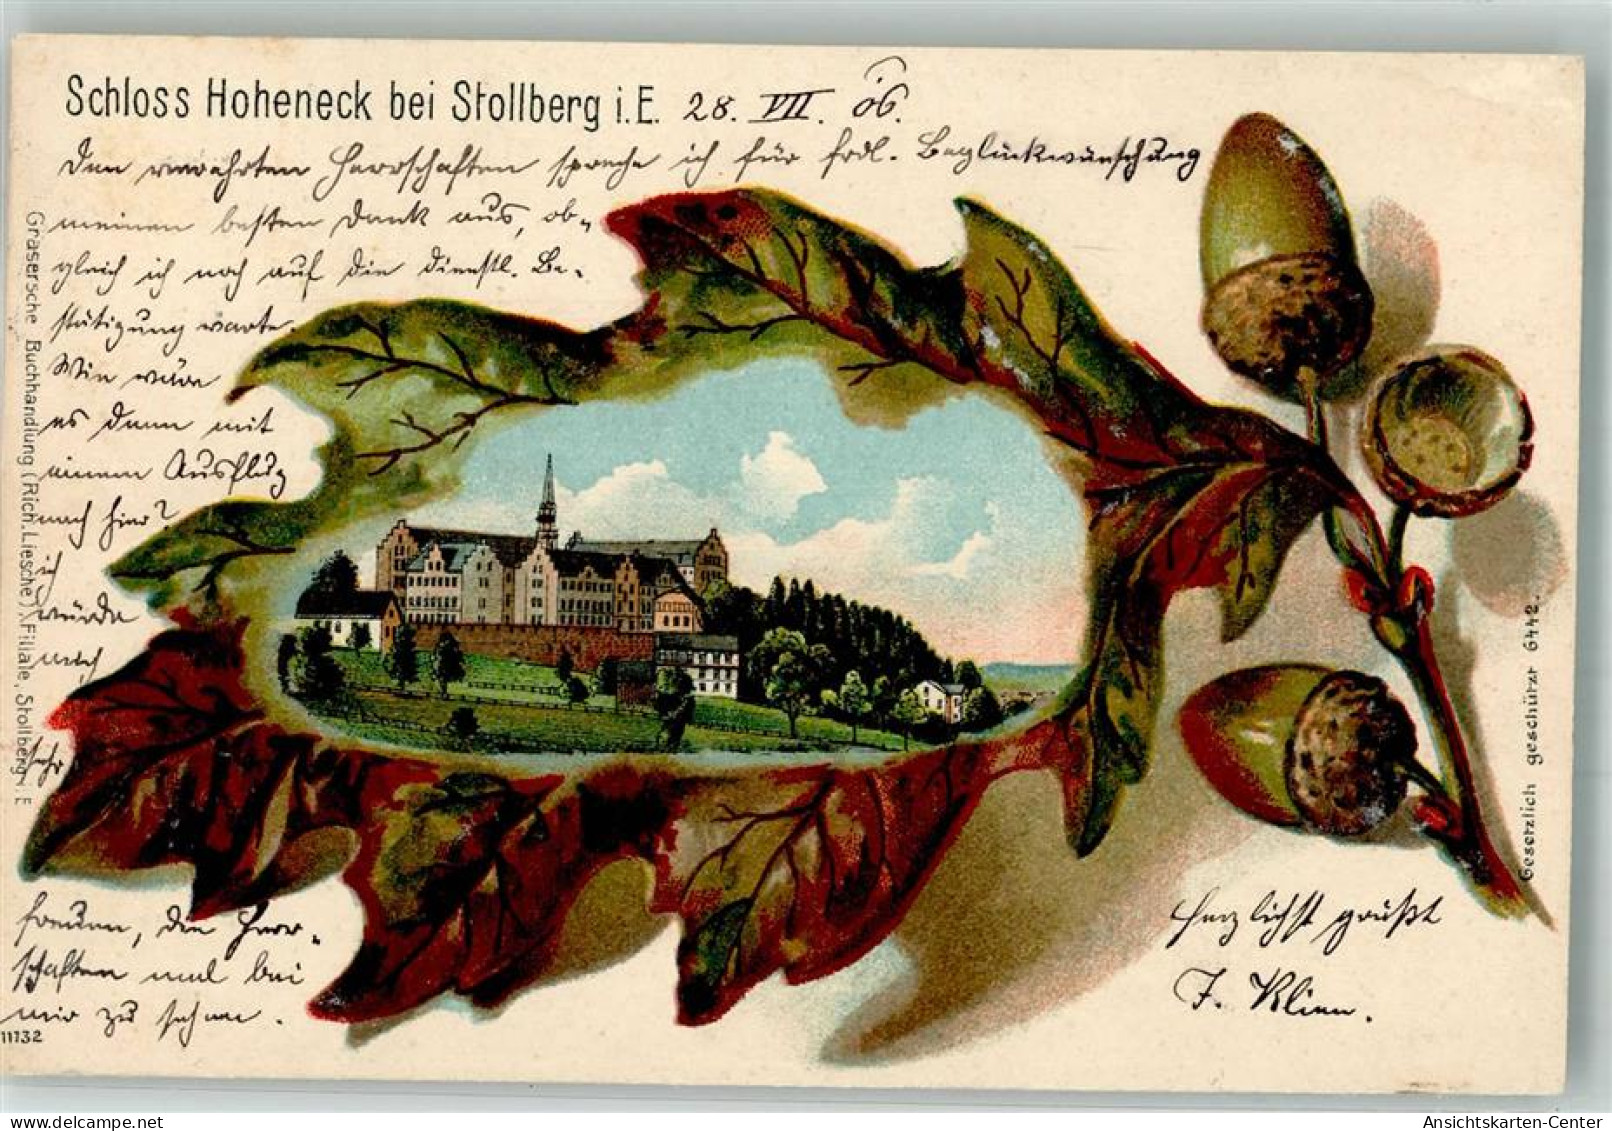 Schloss Hoheneck bei Stollberg i.E. 28. VII. 06.
Den verehrten Herrschaften spreche ich für frdl. Beglückwünschung
meinen besten Dank aus, ob-
gleich ich noch auf die dienstl. Be-
stätigung warte.
Wie wäre
es denn mit
einem Ausflug
nach hier?
ich
würde
mich
sehr
freuen, die Herr-
schaften mal bei
mir zu sehen.
11132
Herzlichst grüßt
F. Klien.
Grasersche Buchhandlung (Rich. Liesche) Filiale, Stollberg i E
Gesetzlich geschützt 6442.
Ansichtskarten-Center